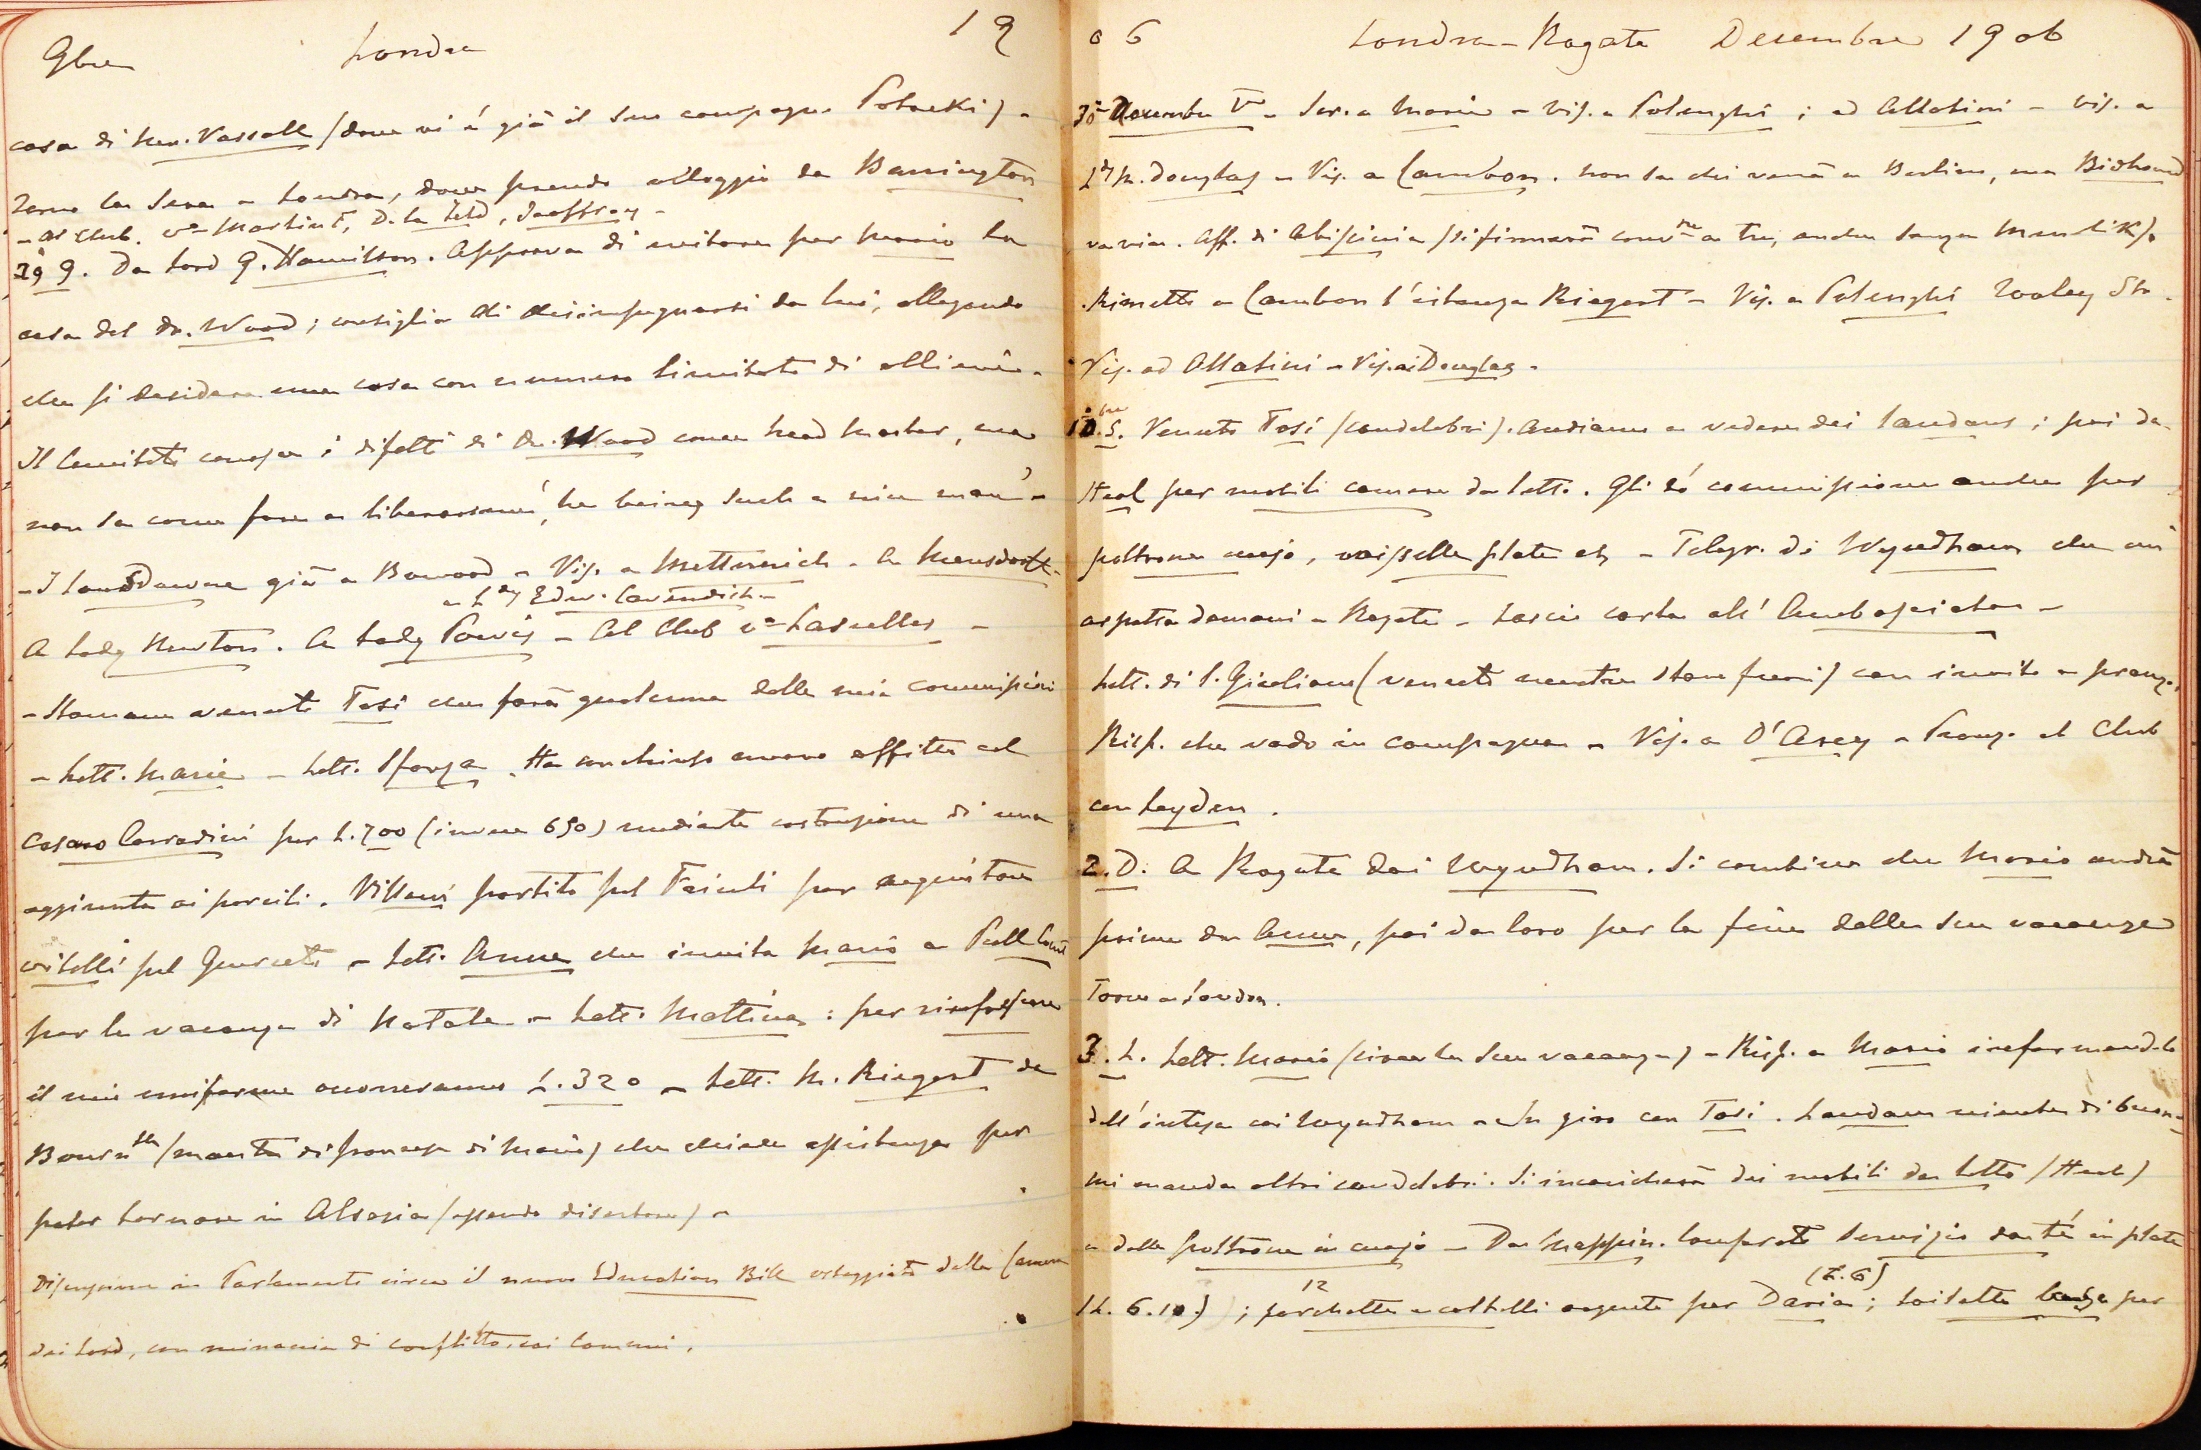 9bre Londra 19
casa di Mr. Vassall (dove vi è già il suo compagno Potocki) -
Torno la sera a Londra, dove prendo alloggio da Barrington
- al Club. vo Martini, D. la Feld, Jeoffroy -
29 g. Da Lord G. Hamilton. Approva di evitare per Mario la
casa del Dr. Wood; consiglia di disimpegnarsi da lui, allegando
che si desidera una casa con numero limitato di allievi -
Il Comitato conosce i difetti di Dr. Wood come head master, ma
non sa come fare a liberarsene, he being such a nice man! -
- I Lansdowne già a Bowood - Vis. a Metternich - a Mensdorff -
- a Ldy Edw. Cavendish -
A Lady Newton. A Lady Powis - Al Club vo Lascelles -
- Stamane venuto Tosi che farà qualcuna delle mie commissioni
- Lett. Maria - Lett. Sforza. Ha conchiuso nuovo affitto col
casaro Corradini per L. 700 (invece 650) mediante costruzione di una
aggiunta ai porcili. Villani partito pel Friuli per acquistare
vitelli pel Guasto - Lett. Anna che invita Mario a Pell Court
per le vacanze di Natale - Lett. Mattina: per
il mio uniforme occorreranno L. 320 - Lett. M. Riegert da
Bournth (maestro di francese di Mario) che chiede assistenza per
poter tornare in Alsazia (essendo disertore) -
Discussione in Parlamento circa il nuovo Education Bill osteggiato dalla Camera
dei Lord, con minaccia di conflitto coi Comuni.
06 Londra - Rogate Decembre 1906
30 Novembre V. - Scr. a Maria - Vis. a Polenghi; ad Allatini - Vis. a
Ldy M. Douglas - Vis. a Cambon. Non sa chi verrà a Berlino, ma Bidhourd
va via. Aff. di Abissinia (si firmerà convne a tre, anche senza Menelik).
Rimetto a Cambon l'istanza Riegert - Vis. a Polenghi Tooley Str.
Vis. ad Allatini - Vis. ai Douglas -
1 Xbre S. Venuto Tosi (candelabri). Andiamo a vedere dei landaus; poi da
Heal per mobili camere da letto. Gli dò commissione anche per
poltrone cuojo, vaisselle plate etc - Telegr. di Wyndham che mi
aspetta domani a Rogate - Lascio carta all'Ambasciatore -
Lett. di C. Giuliani (venuto mentre stavo fuori) con invito a pranzo.
Risp. che vado in campagna - Vis. a D'Arcy - Pranzo al Club
con Leyden.
2. D. A Rogate dai Wyndham. Si combina che Mario andrà
prima da Anna, poi da loro per la fine delle sue vacanze
Torno a Londra.
3. L. Lett. Mario (circa le sue vacanze) - Risp. a Mario informandolo
dell'intesa coi Wyndham - In giro con Tosi. Landau niente di buono
mi manda altri candelabri. Si incaricherà dei mobili da letto (Heal)
e delle poltrone in cuojo - Da Mappin. Comprato servizio da thé in plate
12 (L. 6)
(L. 6.10.); forchette e coltelli argento per Daria; toilette per